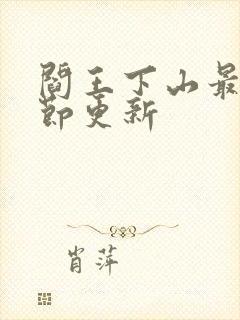 阎王下山最
节更新
肖萍